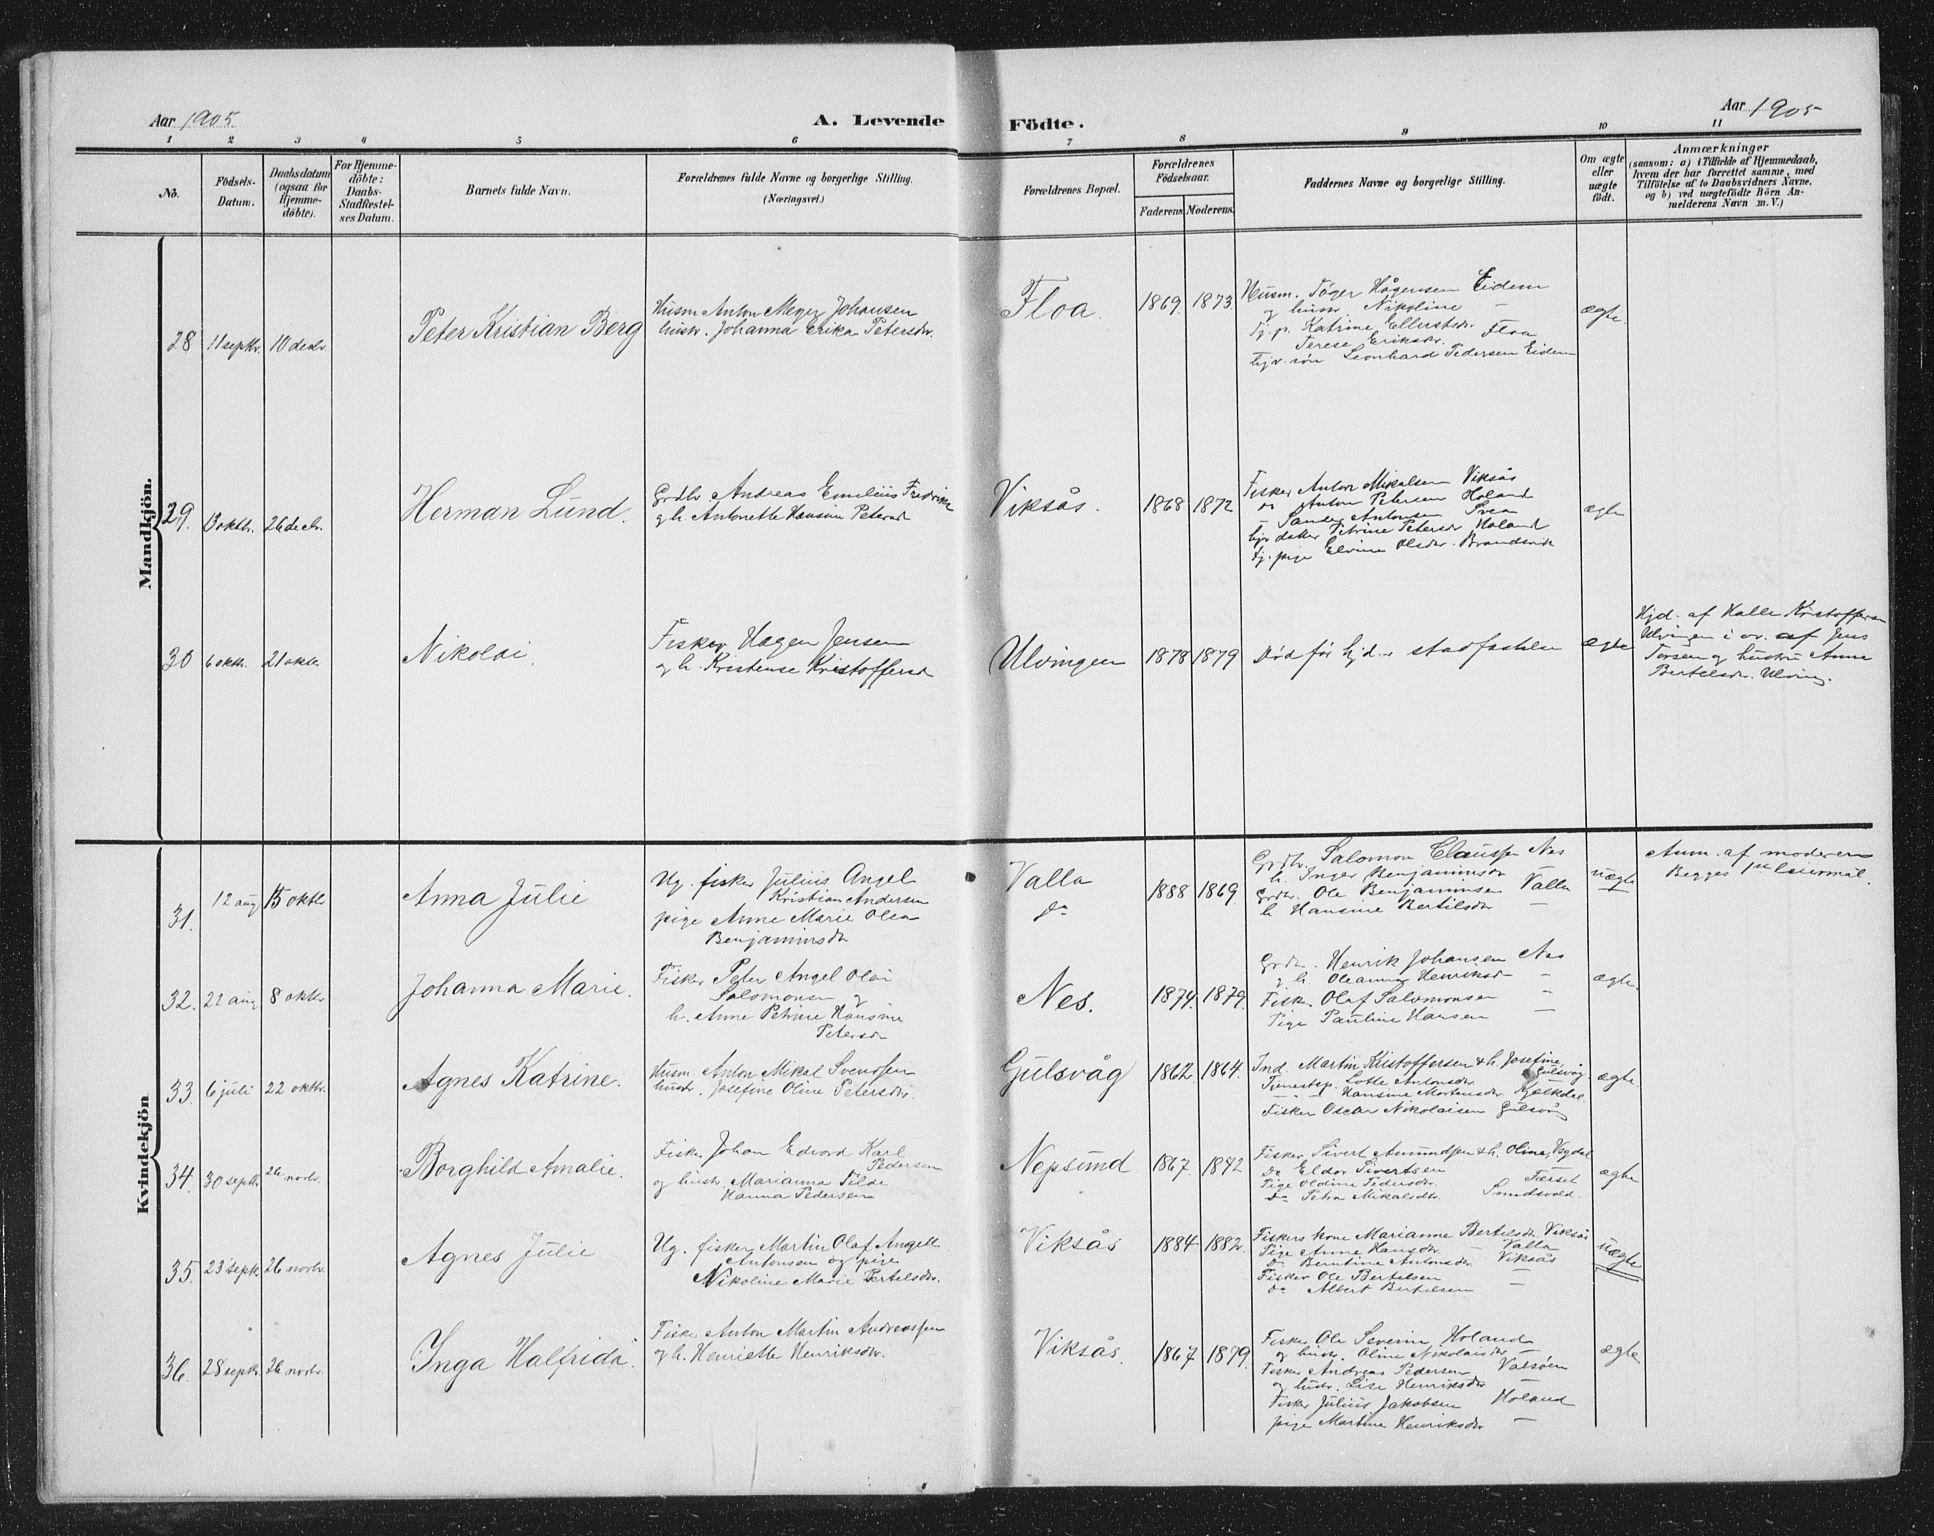 Aar 1905
A. Levende Födte.
Aar 1905
1 2 3 4 5 6 7 8 9 10 11
No.
Födsels-
Datum.
Daabsdatum
(ogsaa for
Hjemme-
döbte).
For Hjemme-
döbte:
Daabs-
Stadfæstel-
ses Datum.
Barnets fulde Navn.
Forældrenes fulde Navne og borgerlige Stilling.
(Næringsvei.)
Forældrenes Bopæl.
Forældrenes
Födselsaar.
Faderens. Moderens.
Faddernes Navne og borgerlige Stilling.
Om ægte
eller
uægte
födt.
Anmærkninger
(saasom: a) i Tilfælde af Hjemmedaab,
hvem der har forrettet samme, med
Tilföielse af to Daabsvidners Navne,
og b) ved uægtefödte Börn An-
melderens Navn m. V.)
Mandkjön.
28 11 septbr. 10 decbr.
Peter Kristian Berg
Husm Anton Meyer Johansen
hustr. Johanna Erika Petersdtr.
Floa.
1869. 1873
Husm. Töger Hågensen Eidem
og hustr. Nikoline —
Tj. p. Katrine Ellersdtr.
Terese Eriksdtr. Floa
tjv. søn Leonhard Pedersen Eidem
ægte.
29. 13 oktbr. 26 decbr.
Herman Lund.
Grdbr. Andreas Emelius Fredrik
og h. Antonette Hansine Petersd
Viksås.
1868 1872
Fisker Anton Mikalsen Viksås
do Anton Petersen Holand
— Sander Antonsen Svea
tjv datter Petrine Petersdr Holand
tj. pige Elvine Olsdtr. Brandsvik
ægte
30 6 oktbr. 21 oktbr
Nikolai.
Fisker Hagen Jensen
og h. Kristense Kristoffersd
Ulvingen
1878 1879
Död för hjd.s stadfæstelse
ægte
Hjd. af Halle Kristoffersen
Ulvingen i ov. af Jens
Torsen og hustru Anne
Bertelsdr. Ulving.
Kvindekjön
31. 12 aug 15 oktbr
Anna Julie
Ug. fisker Julius Angel
Kristian Andersen
pige Anne Marie Olea
Benjaminsdr
Valla
do
1888 1869.
Grdbr. Salomon Claussen Nes
h. Inger Benjaminsdr —
Grdbr. Ole Benjaminsen Valla
h. Hansine Bertilsdtr —
uægte
Anm. af moderen
Begges 1ste leiermål.
32. 22 aug 8 oktbr
Johanna Marie.
Fisker Peter Angel Olai
Salomonsen og
h. Anne Petrine Hansine
Petersdr
Nes.
1874. 1879.
Grdbr. Henrik Johansen Nes
og h. Oleanna Henriksd —
Fisk. Olaf Salomonsen —
Pige Pauline Hansen —
ægte.
33. 6 juli 22 oktbr.
Agnes Katrine.
Husm. Anton Mikal Svendsen
hustr. Josefine Oline Petersdtr.
Gulsvåg
1862. 1864.
Ind. Martin Kristoffersen & h. Josefine
Gulsvåg.
Tjenestep. Lotte Antonsdr.
— „ — Hansine Mortensdr. Kjelkdal.
Fisker Oscar Nikolaisen Gulsvåg
ægte.
34. 30 septbr. 26 novbr.
Borghild Amalie.
Fisker Johan Edvard Karl
Pedersen
og hustr. Marianna Tilde
Hanna Pedersen
Nepsund
1867. 1872
Fisker Sivert Amundsen & h. Olina, Vogdal
do Eldor Sivertsen —
Pige Oldine Pedersdtr. Færset
do Petra Mikalsdtr. Sundsvold.
ægte
35. 23 septbr. 26 novbr.
Agnes Julie
Ug. fisker Martin Olaf Angell
Antonsen og pige
Nikoline Marie Bertelsdtr.
Viksås
1884 1882.
Fiskers kone Marianne Bertelsdr. Viksås
Pige Anne Hansdtr — Valla
do Berntine Antonsdr Viksås
Fisker Ole Bertelsen —
do Albert Bertelsen —
uægte
36. 28 septbr. 26 novbr.
Inga Halfrida.
Fisker Anton Martin Andreassen
og h. Henriette Henriksdtr.
Viksås.
1867 1879.
Fisker Ole Severin Holand
og hustr. Oline Nikolaisdr —
Fisker Andreas Pedersen Valsöen
og hustr. Lise Henriksdtr —
Fisker Julius Jakobsen Holand
pige Martine Henriksdtr —
ægte